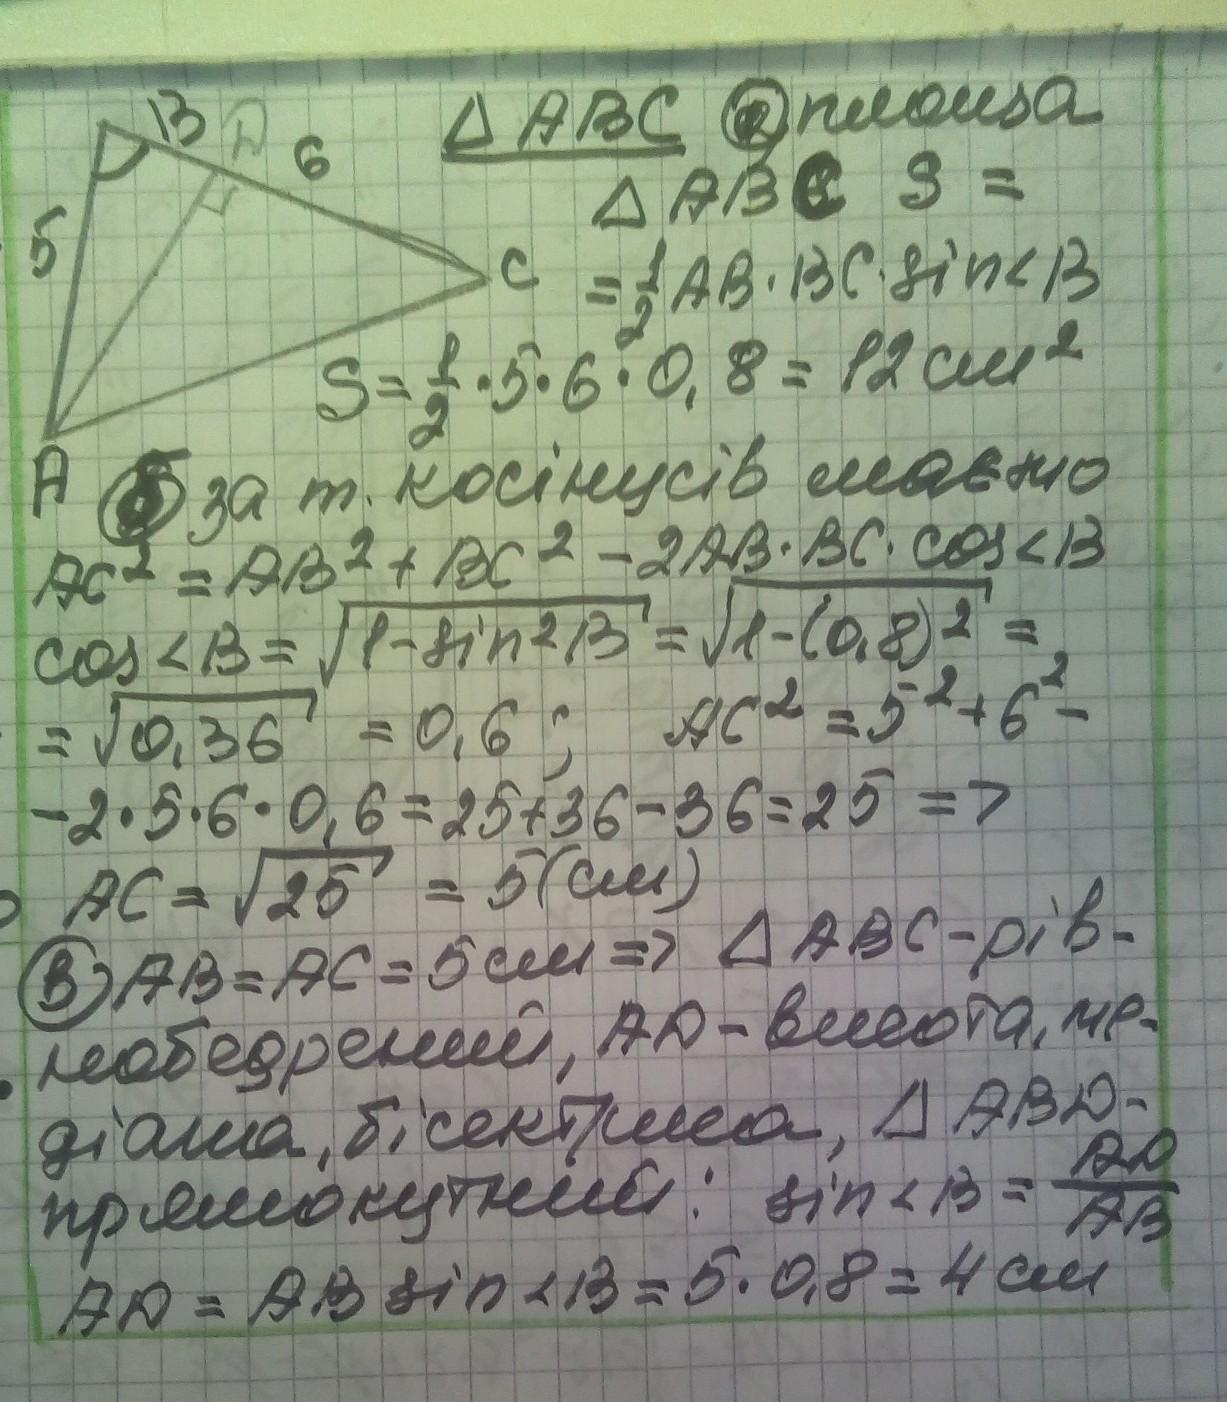 B D 6
5
C
A
△ ABC а) площа
△ ABC S =
= 1/2 AB · BC · sin < B
S = 1/2 · 5 · 6 · 0,8 = 12 см²
б) за т. косінусів маємо
AC² = AB² + BC² - 2AB · BC · cos < B
cos < B = √(1 - sin² B) = √(1 - (0,8)²) =
= √0,36 = 0,6 ; AC² = 5² + 6² -
- 2 · 5 · 6 · 0,6 = 25 + 36 - 36 = 25 =>
AC = √25 = 5 (см)
в) AB = AC = 5 см => △ ABC - рів-
нобедрений, AD - висота, ме-
діана, бісектриса, △ ABD -
прямокутний : sin < B = AD/AB
AD = AB sin < B = 5 · 0,8 = 4 см